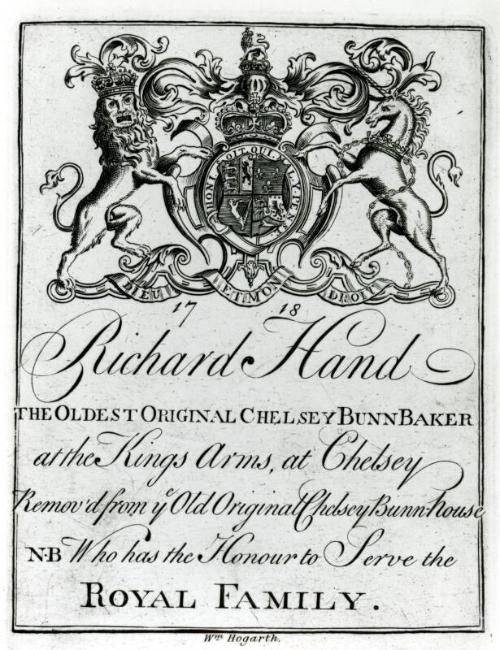 HONI SOIT QUI MAL Y PENSE
DIEU ET MON DROIT
17 18
Richard Hand
THE OLDEST ORIGINAL CHELSEY BUNN BAKER
at the Kings Arms, at Chelsey
Remov'd from yᵉ Old Original Chelsey Bunn-house
N·B Who has the Honour to Serve the
ROYAL FAMILY.
Wᵐ Hogarth.